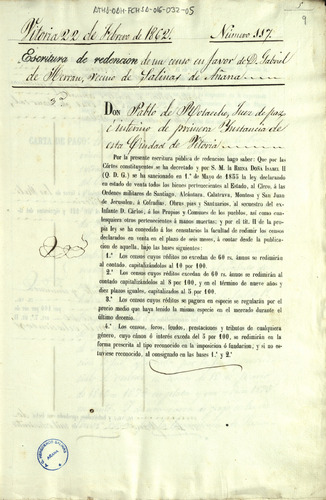 ATHA-DAH-FCHSA-016-032-05
5
9
Vitoria 22 de Febrero de 1862. Número 117.
Escritura de redencion de un censo en favor de D. Gabriel
de Herran, vecino de Salinas de Añana
DON Pablo de Juez de paz
é interino de primera Instancia de
esta Ciudad de Vitoria
Por la presente escritura pública de redencion hago saber: Que por las
Córtes constituyentes se ha decretado y por S. M. la REINA DOÑA ISABEL II
(Q. D. G.) se ha sancionado en 1.º de Mayo de 1855 la ley declarando
en estado de venta todos los bienes pertenecientes al Estado, al Clero, á las
Ordenes militares de Santiago, Alcántara, Calatrava, Montesa y San Juan
de Jerusalen, á Cofradias, Obras pias y Santuarios, al secuestro del ex-
Infante D. Cárlos, á los Propios y Comunes de los pueblos, así como cua-
lesquiera otros pertenecientes á manos muertas; y por el tít. II de la propia
ley se ha concedido á los censatarios la facultad de redimir los censos
declarados en venta en el plazo de seis meses, á contar desde la publicacion
de aquella, bajo las bases siguientes:
1.ª Los censos cuyos réditos no excedan de 60 rs. anuos se redimirán
al contado, capitalizándolos al 10 por 100.
2.ª Los censos cuyos réditos excedan de 60 rs. anuos se redimirán al
contado capitalizados al 8 por 100, y en el término de nueve años y
diez plazos iguales, capitalizados al 5 por 100.
3.ª Los censos cuyos réditos se paguen en especie se regularán por el
precio medio que haya tenido la misma especie en el mercado durante el
último decenio.
4.ª Los censos, foros, feudos, prestaciones y tributos de cualquiera
género, cuyo cánon ó interés exceda del 5 por 100, se redimirán en la
forma prescrita al tipo reconocido en la imposicion ó fundacion; y si no estu-
viese reconocido, al consignado en las bases 1.ª y 2.ª